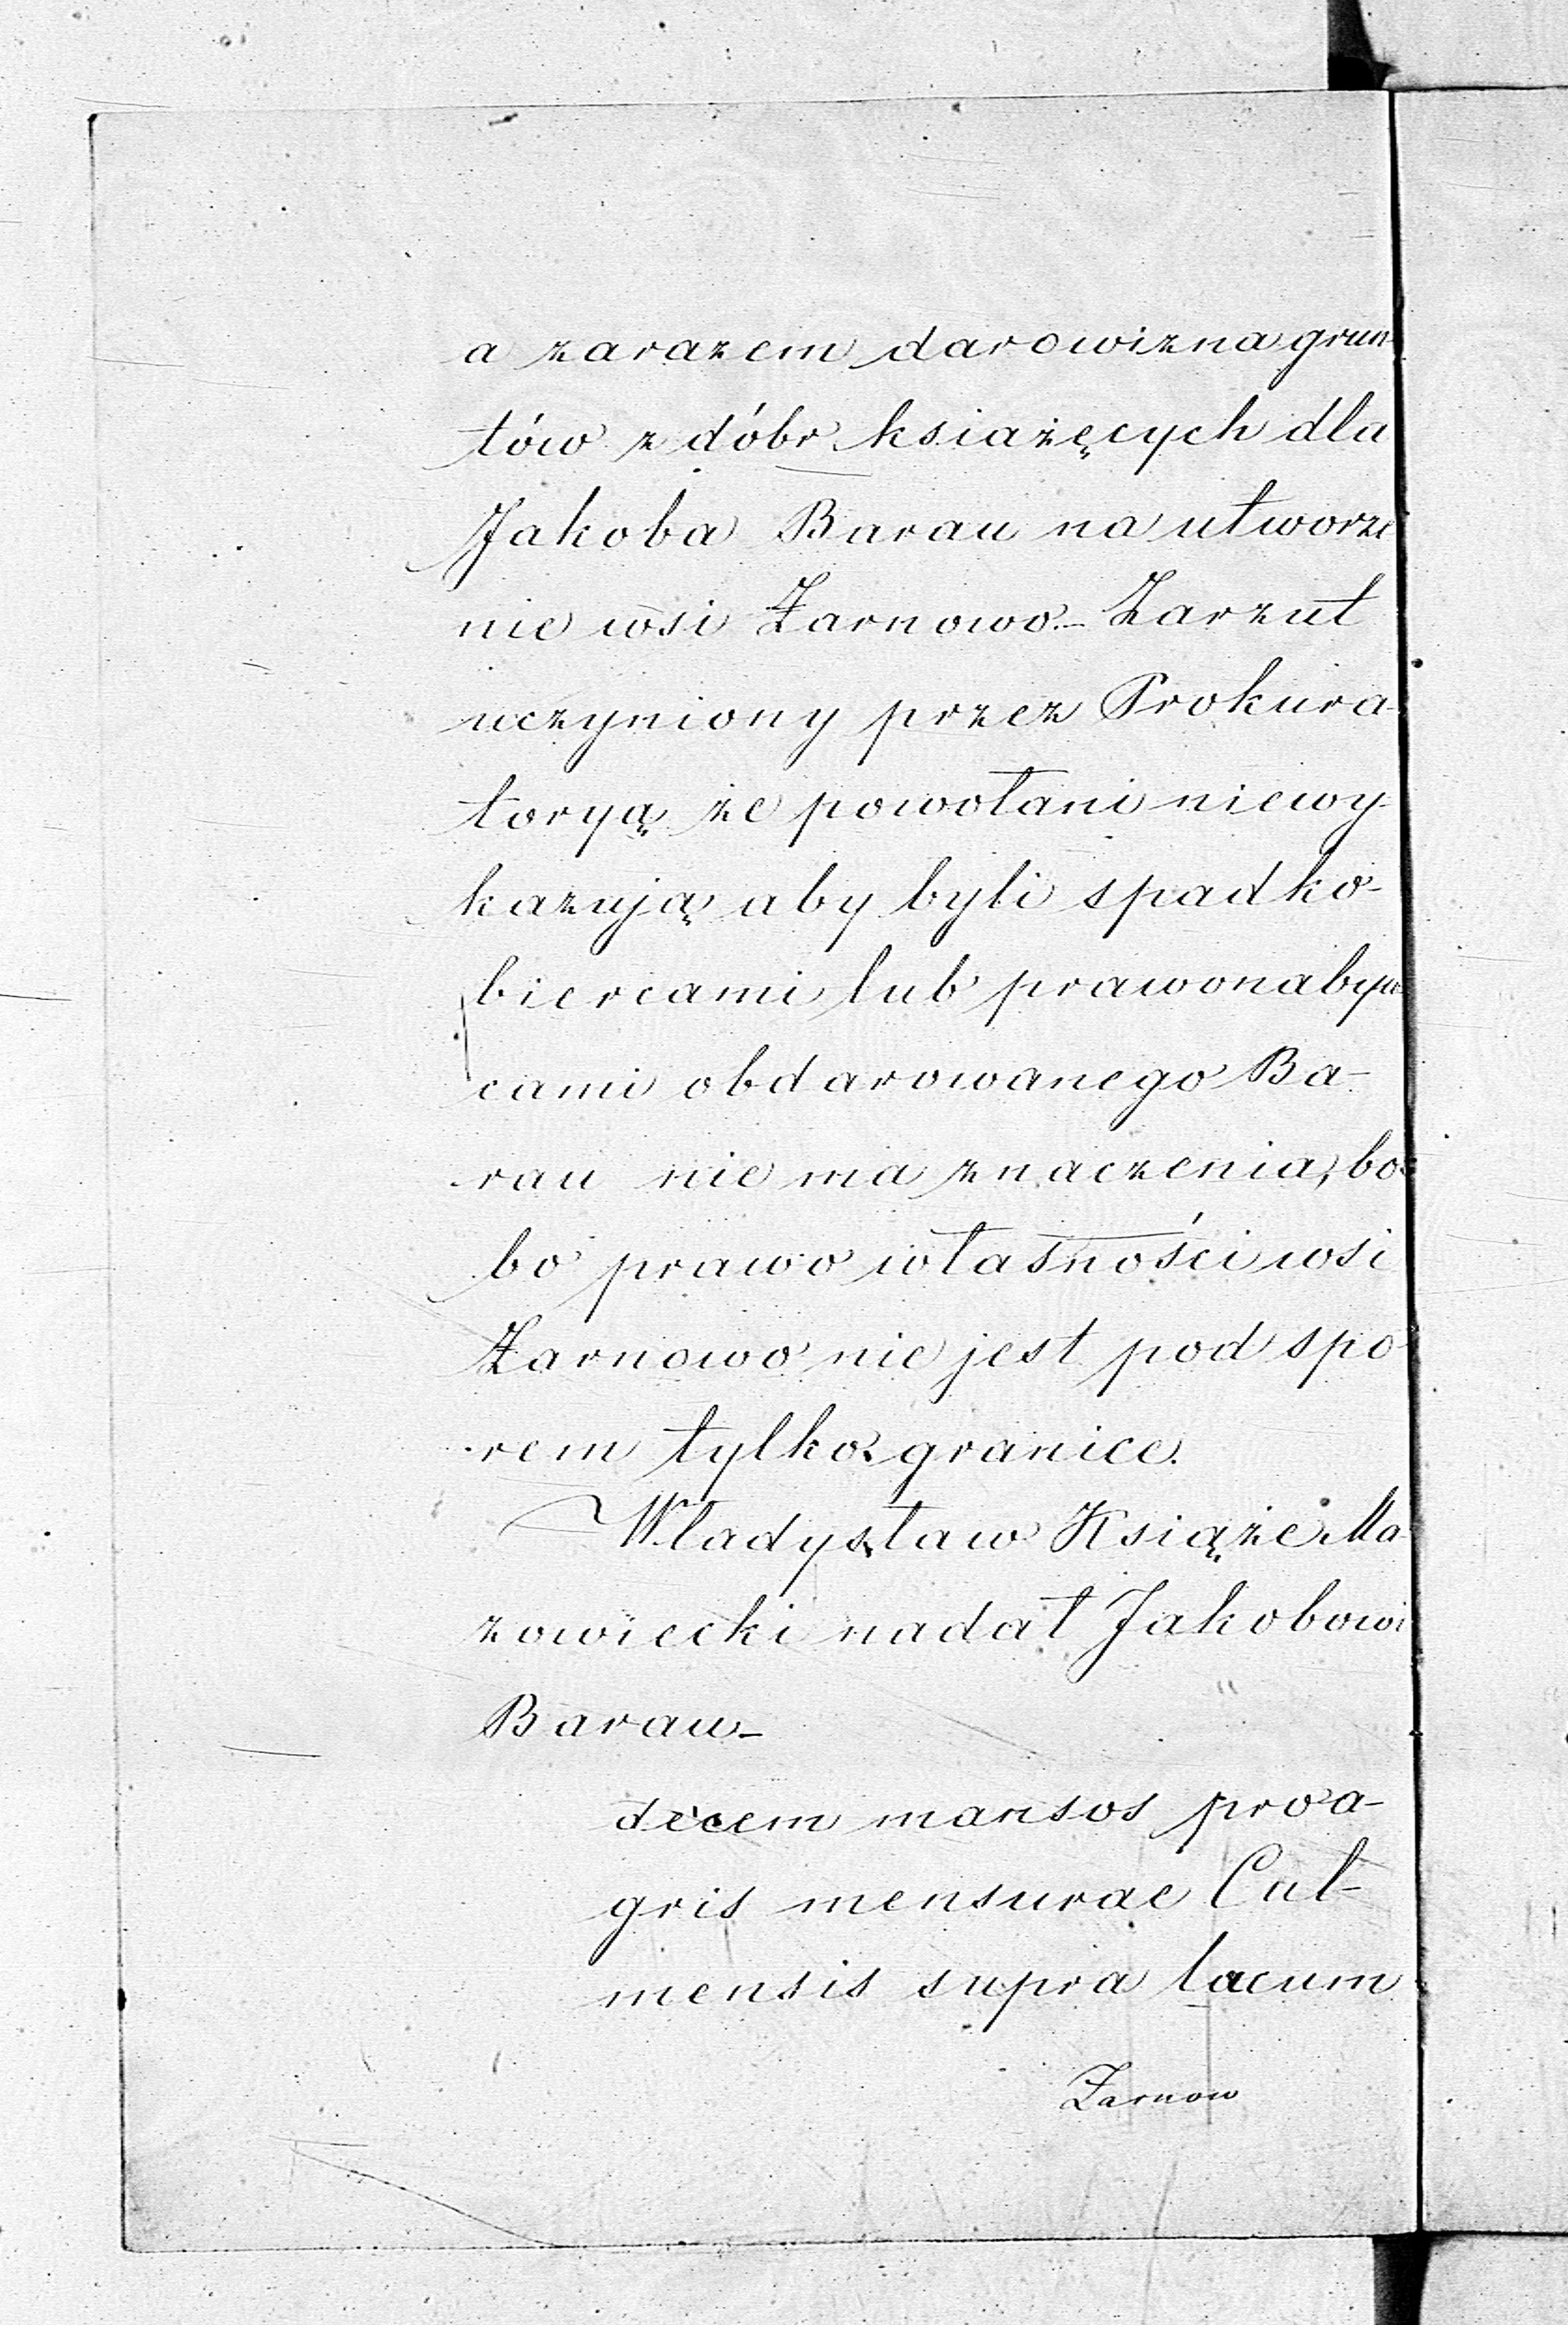 a zarazem darowizna grun
tów z dóbr książęcych dla
Jakoba Barau na utworze
nie wsi Żarnowo. – Zarzut
uczyniony przez Prokura-
toryą że powołani niewy-
kazują aby byli spadko-
biercami lub prawonabyw
cami obdarowanego Ba-
rau nie ma znaczenia, bo
bo prawo własności wsi
Żarnowo nie jest pod spo-
rem tylko granice.
Władysław Książe Ma-
zowiecki nadał Jakobowi
Barau –
decem mansos pro a-
gris mensurae Cul-
mensis supra lacum
Żarnow